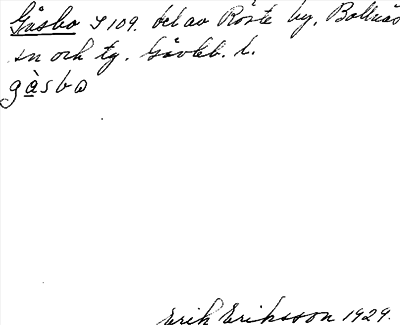 Gåsbo S 109. del av Röste by, Bollnäs
sn och tg. Gävleb. l.
gàsbo
Erik Eriksson 1929.